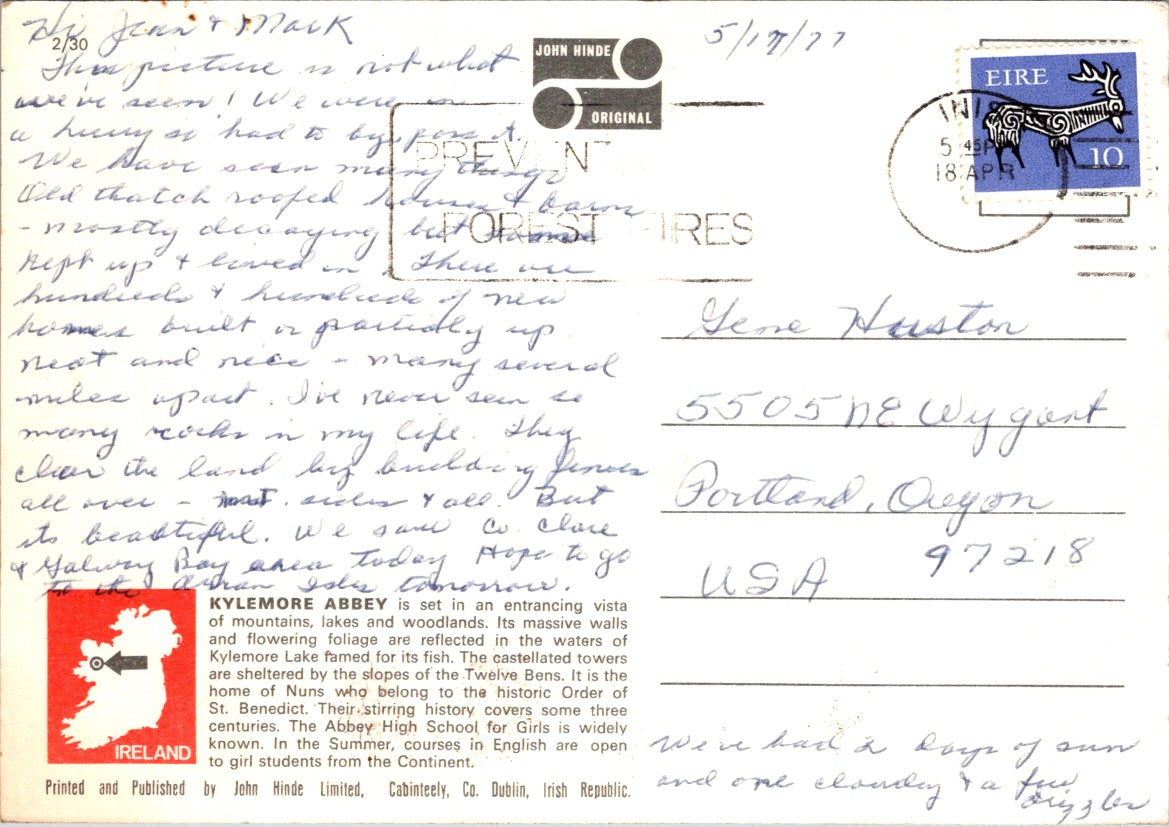 Hi Jean & Mark
2/30
5/17/77
This picture is not what
we've seen! We were in
a hurry so had to by pass it.
We have seen many things
Old thatch roofed houses & barns
- mostly decaying but some
kept up & lived in. There are
hundreds & hundreds of new
homes built or partially up
neat and nice - many several
miles apart. I've never seen so
many rocks in my life. They
clear the land by building fences
all over - sides & all. But
its beautiful. We saw Co. Clare
& Galway Bay area today Hope to go
to the Arran Isles tomorrow.
JOHN HINDE
ORIGINAL
PREVENT
FOREST FIRES
EIRE
10
INIS
5 45P
18 APR
Gene Huston
5505 NE Wygant
Portland, Oregon
97218
USA
We've had 2 days of sun
and one cloudy & a few
drizzles
IRELAND
KYLEMORE ABBEY is set in an entrancing vista
of mountains, lakes and woodlands. Its massive walls
and flowering foliage are reflected in the waters of
Kylemore Lake famed for its fish. The castellated towers
are sheltered by the slopes of the Twelve Bens. It is the
home of Nuns who belong to the historic Order of
St. Benedict. Their stirring history covers some three
centuries. The Abbey High School for Girls is widely
known. In the Summer, courses in English are open
to girl students from the Continent.
Printed and Published by John Hinde Limited, Cabinteely, Co. Dublin, Irish Republic.